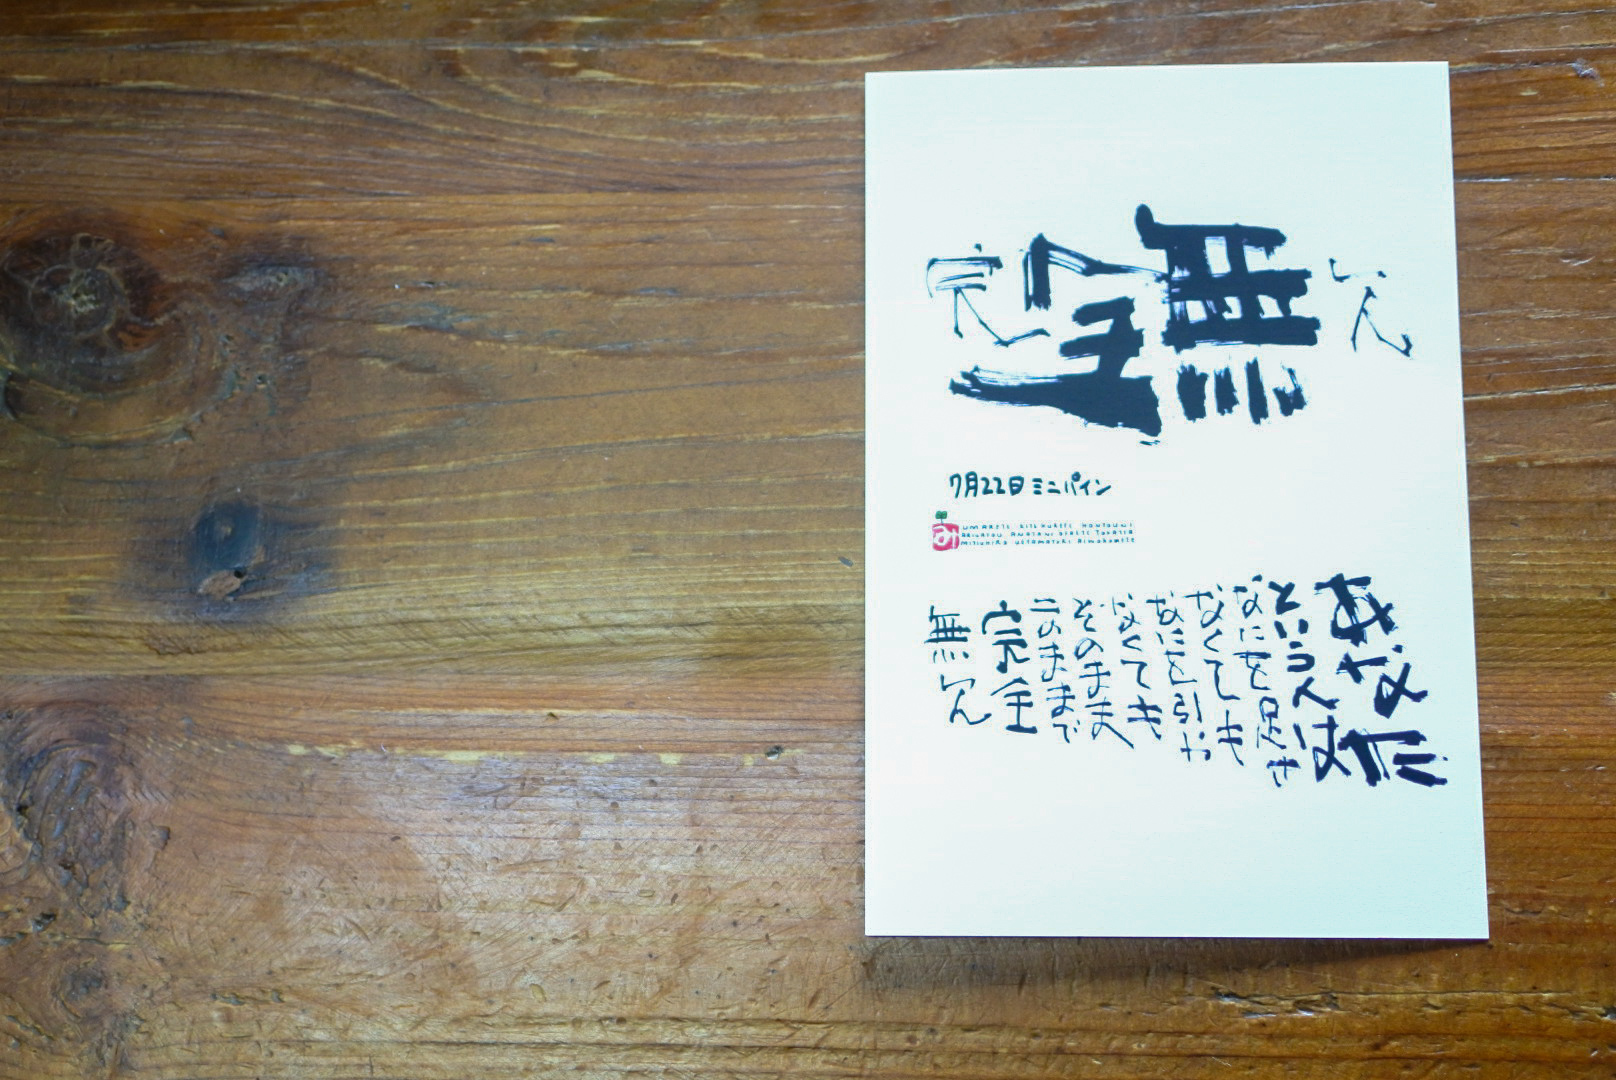 完全無欠
7月22日 ミニパイン
み
UMARETE KITEKURETE HONTOUNI
ARIGATOU ANATANI DEAETE
AIWOKOMETE
あなた
という人は
なにを足さ
なくても
なにを引か
なくても
そのまま
このままで
完全
無欠